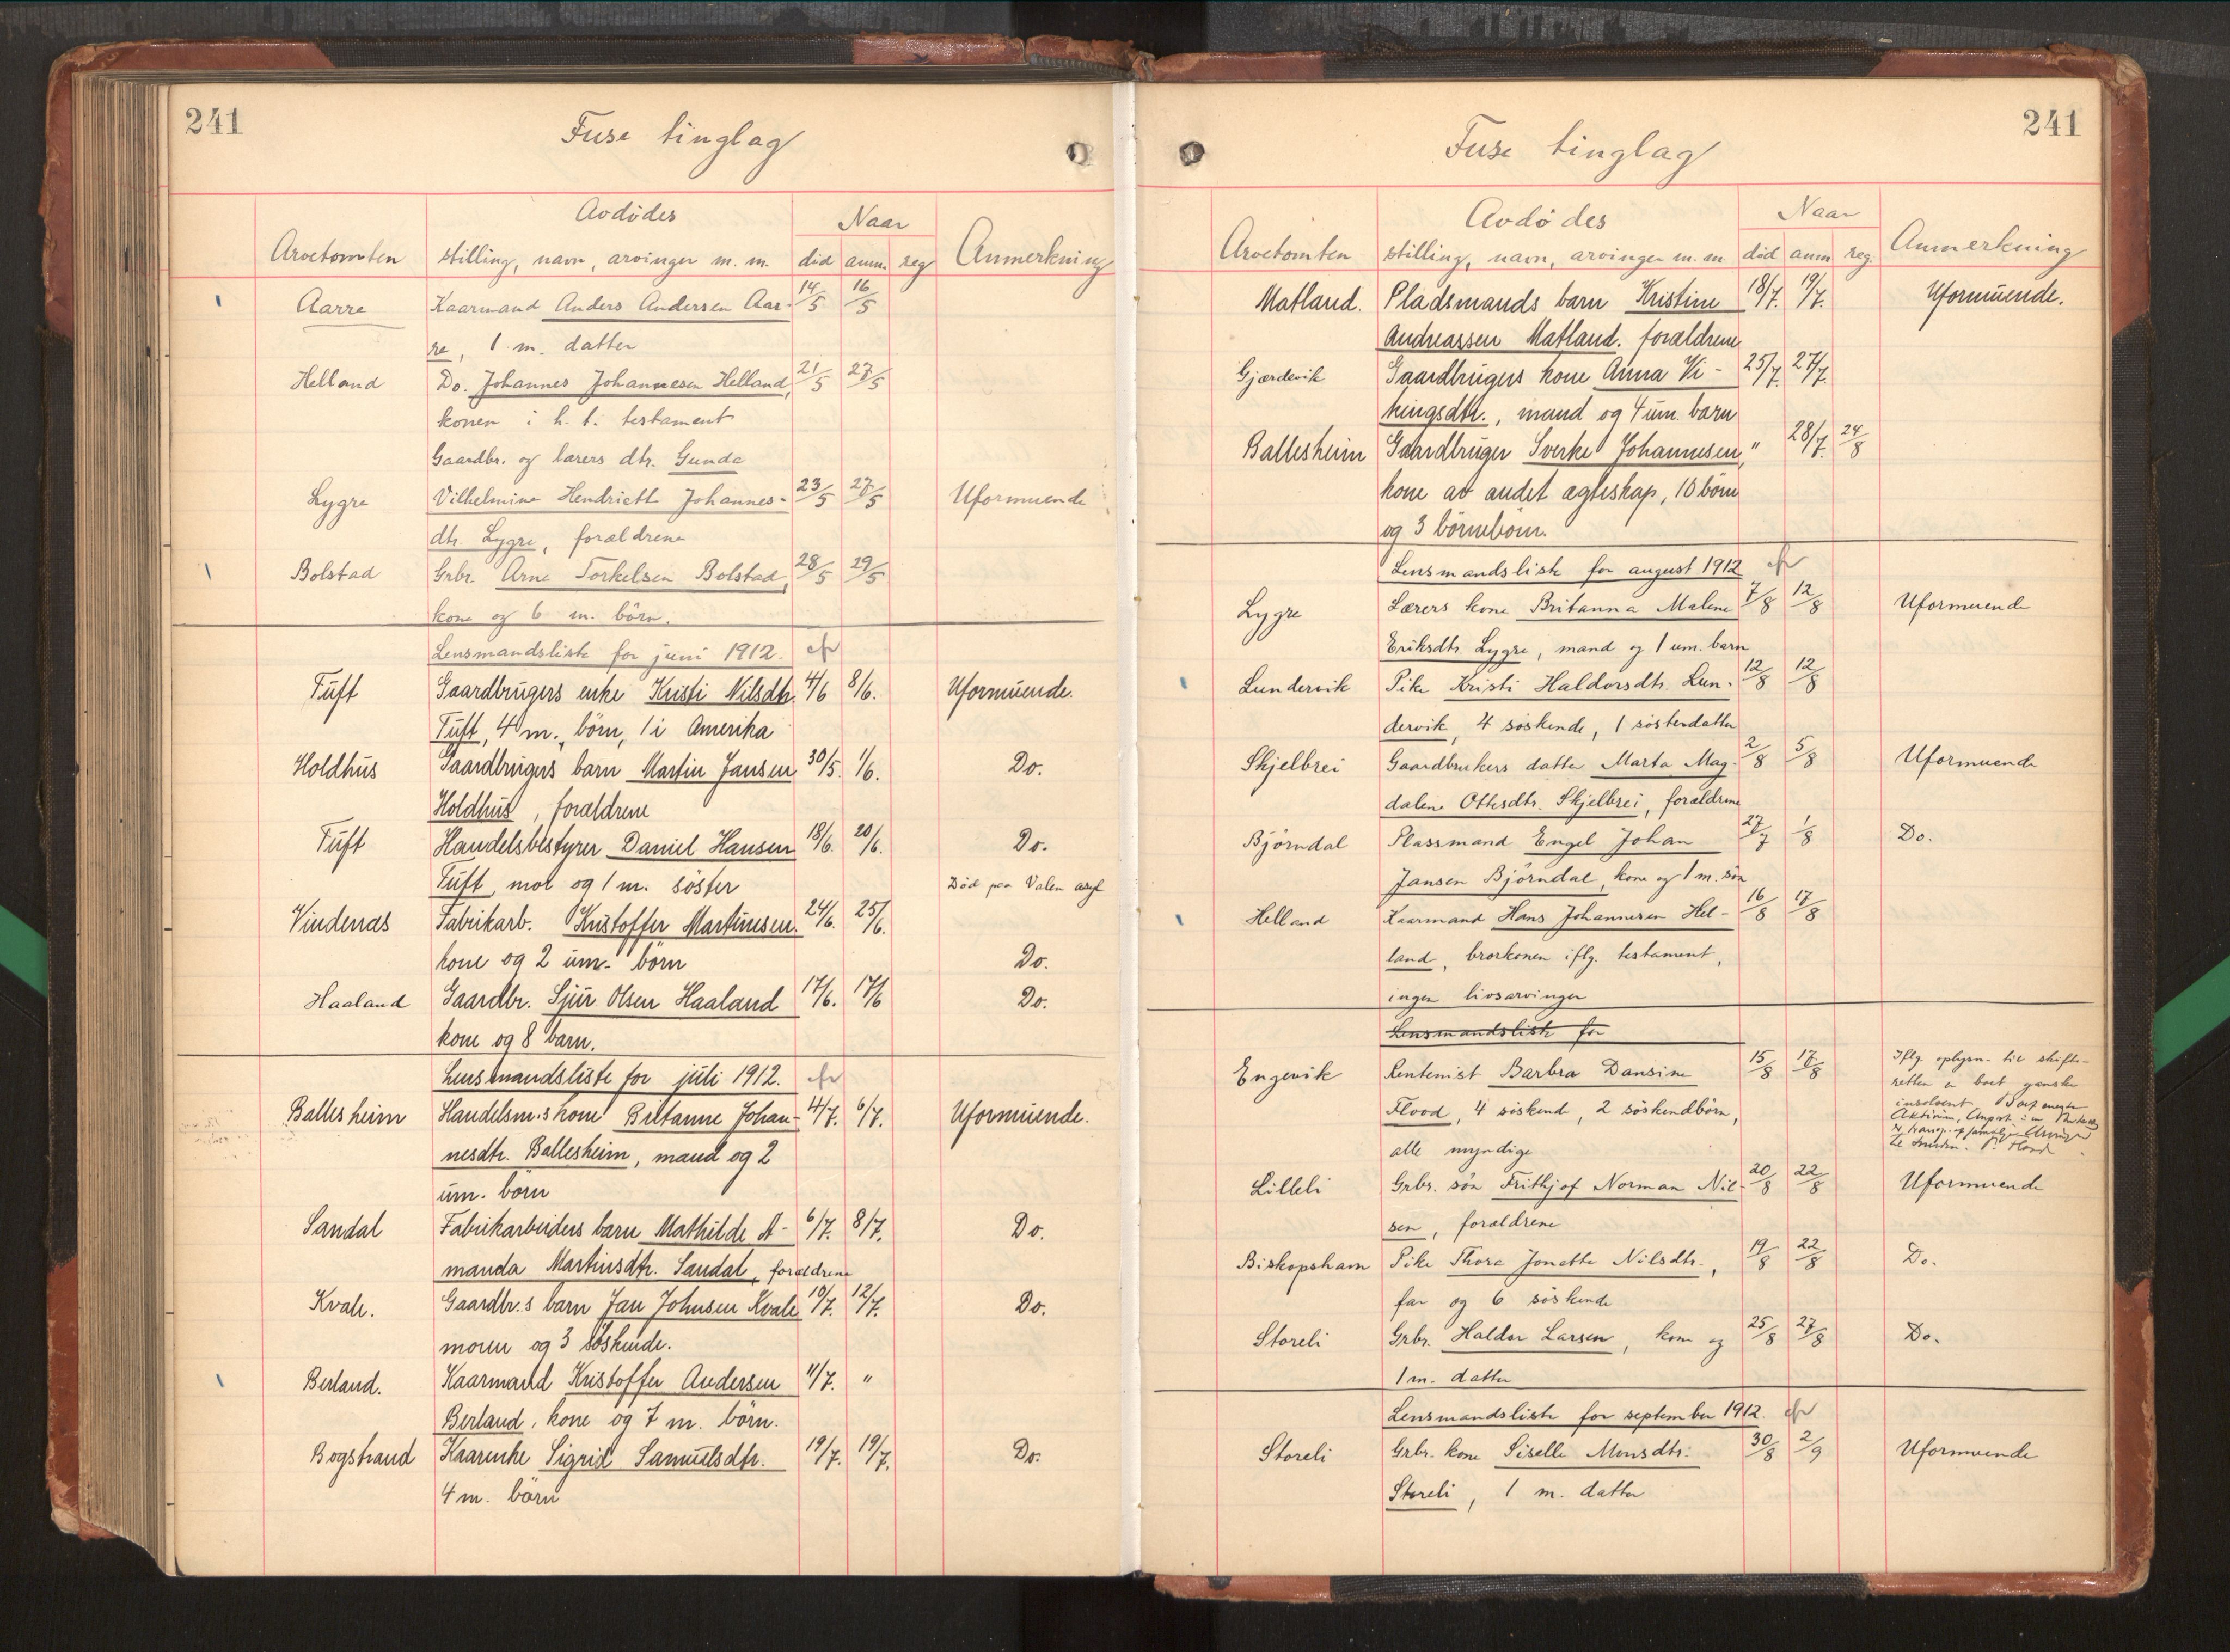 241
Fuse tinglag
Avdødes
Naar
Arvetomten stilling, navn, arvinger m. m. død anm. reg Anmerkning
Aarre Kaarmand Anders Andersen Aar- 14/5 16/5
re, 1 m. datter
Helland Do. Johannes Johannesen Helland, 21/5 27/5
konen i h. t. testament
Gaardbr. og lærers dtr. Gunda
Lygre Vilhelmine Hendriette Johannes- 23/5 27/5 Uformuende
dtr. Lygre, forældrene
Bolstad Grbr. Arne Torkelsen Bolstad, 28/5 29/5
kone og 6 m. börn.
Lensmandsliste for juni 1912.
Tuft Gaardbrugers enke Kristi Nilsdtr. 4/6 8/6. Uformuende.
Tuft, 4 m. börn, 1 i Amerika
Holdhus Gaardbrugers barn Martin Jansen 30/5. 1/6. Do.
Holdhus, forældrene
Tuft Handelsbestyrer Daniel Hansen 18/6. 20/6. Do.
Tuft, mor og 1 m. söster Död paa Valen asyl
Vindenæs Fabrikarb. Kristoffer Martinesen. 24/6. 25/6.
kone og 2 um. börn Do.
Haaland Gaardbr. Sjur Olsen Haaland 17/6. 17/6 Do.
kone og 8 barn.
Lensmandsliste for juli 1912.
Ballesheim Handelsm.s kone Britanne Johan- 4/7. 6/7. Uformuende.
nesdtr. Ballesheim, mand og 2
um. börn
Sandal Fabrikarbeiders barn Mathilde A- 6/7. 8/7. Do.
manda Martinsdtr. Sandal, forældrene
Kvale. Gaardbr.s barn Jan Johnsen Kvale 10/7. 12/7. Do.
moren og 3 söskende.
Berland. Kaarmand Kristoffer Andersen 11/7. "
Berland, kone og 7 m. börn.
Bogstrand Kaarenke Sigrid Samuelsdtr. 19/7. 19/7. Do.
4 m. börn
241
Fuse tinglag
Avdødes
Naar
Arvetomten stilling, navn, arvinger m. m død anm reg. Anmerkning
Matland. Pladsmands barn Kristine 18/7. 19/7. Uformuende.
Andreassen Matland. forældrene
Gjærdevik Gaardbrugers kone Anna Vi- 25/7. 27/7.
kingsdtr., mand og 4 um. barn
Ballesheim Gaardbruger Sverke Johannesen, " 28/7. 24/8
kone av andet ægteskap, 10 börn
og 3 börnebörn.
Lensmandsliste for august 1912
Lygre Lærers kone Britanna Malene 7/8 12/8 Uformuende
Eriksdtr. Lygre, mand og 1 um. barn
Lundervik Pike Kristi Haldorsdtr. Lun- 12/8 12/8
dervik, 4 söskende, 1 sösterdatter
Skjelbrei Gaardbrukers datter Marta Mag- 2/8 5/8 Uformuende
dalene Ottesdtr. Skjelbrei, forældrene
Björndal Plassmand Engel Johan 27/7 1/8 Do.
Jansen Björndal, kone og 1 m. sön
Helland Kaarmand Hans Johannesen Hel- 16/8 17/8
land, brorkonen iflg. testament,
ingen livsarvinger
Lensmandsliste for
Engevik Rentenist Barbra Dansine 15/8 17/8 Iflg. oplysn. til skifte-
Flood, 4 söskend, 2 söskendbörn, retten er boet ganske
insolvent.
alle myndige
Lilleli Grbr. sön Frithjof Norman Nil- 20/8 22/8 Uformuende
sen, forældrene
Biskopshavn Pike Thora Jonette Nilsdtr., 19/8 22/8 Do.
far og 6 söskende
Storeli Grbr. Haldor Larsen, kone og 25/8 27/8 Do.
1 m. datter
Lensmandsliste for september 1912
Storeli Grbr. kone Siselle Monsdtr. 30/8 2/9 Uformuende
Storeli, 1 m. datter